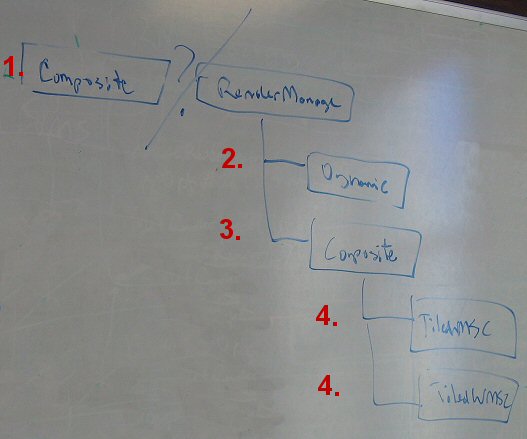 1. Composite ? RenderManage
2. Dynamic
3. Composite
4. TiledWMSC
4. TiledWMS2